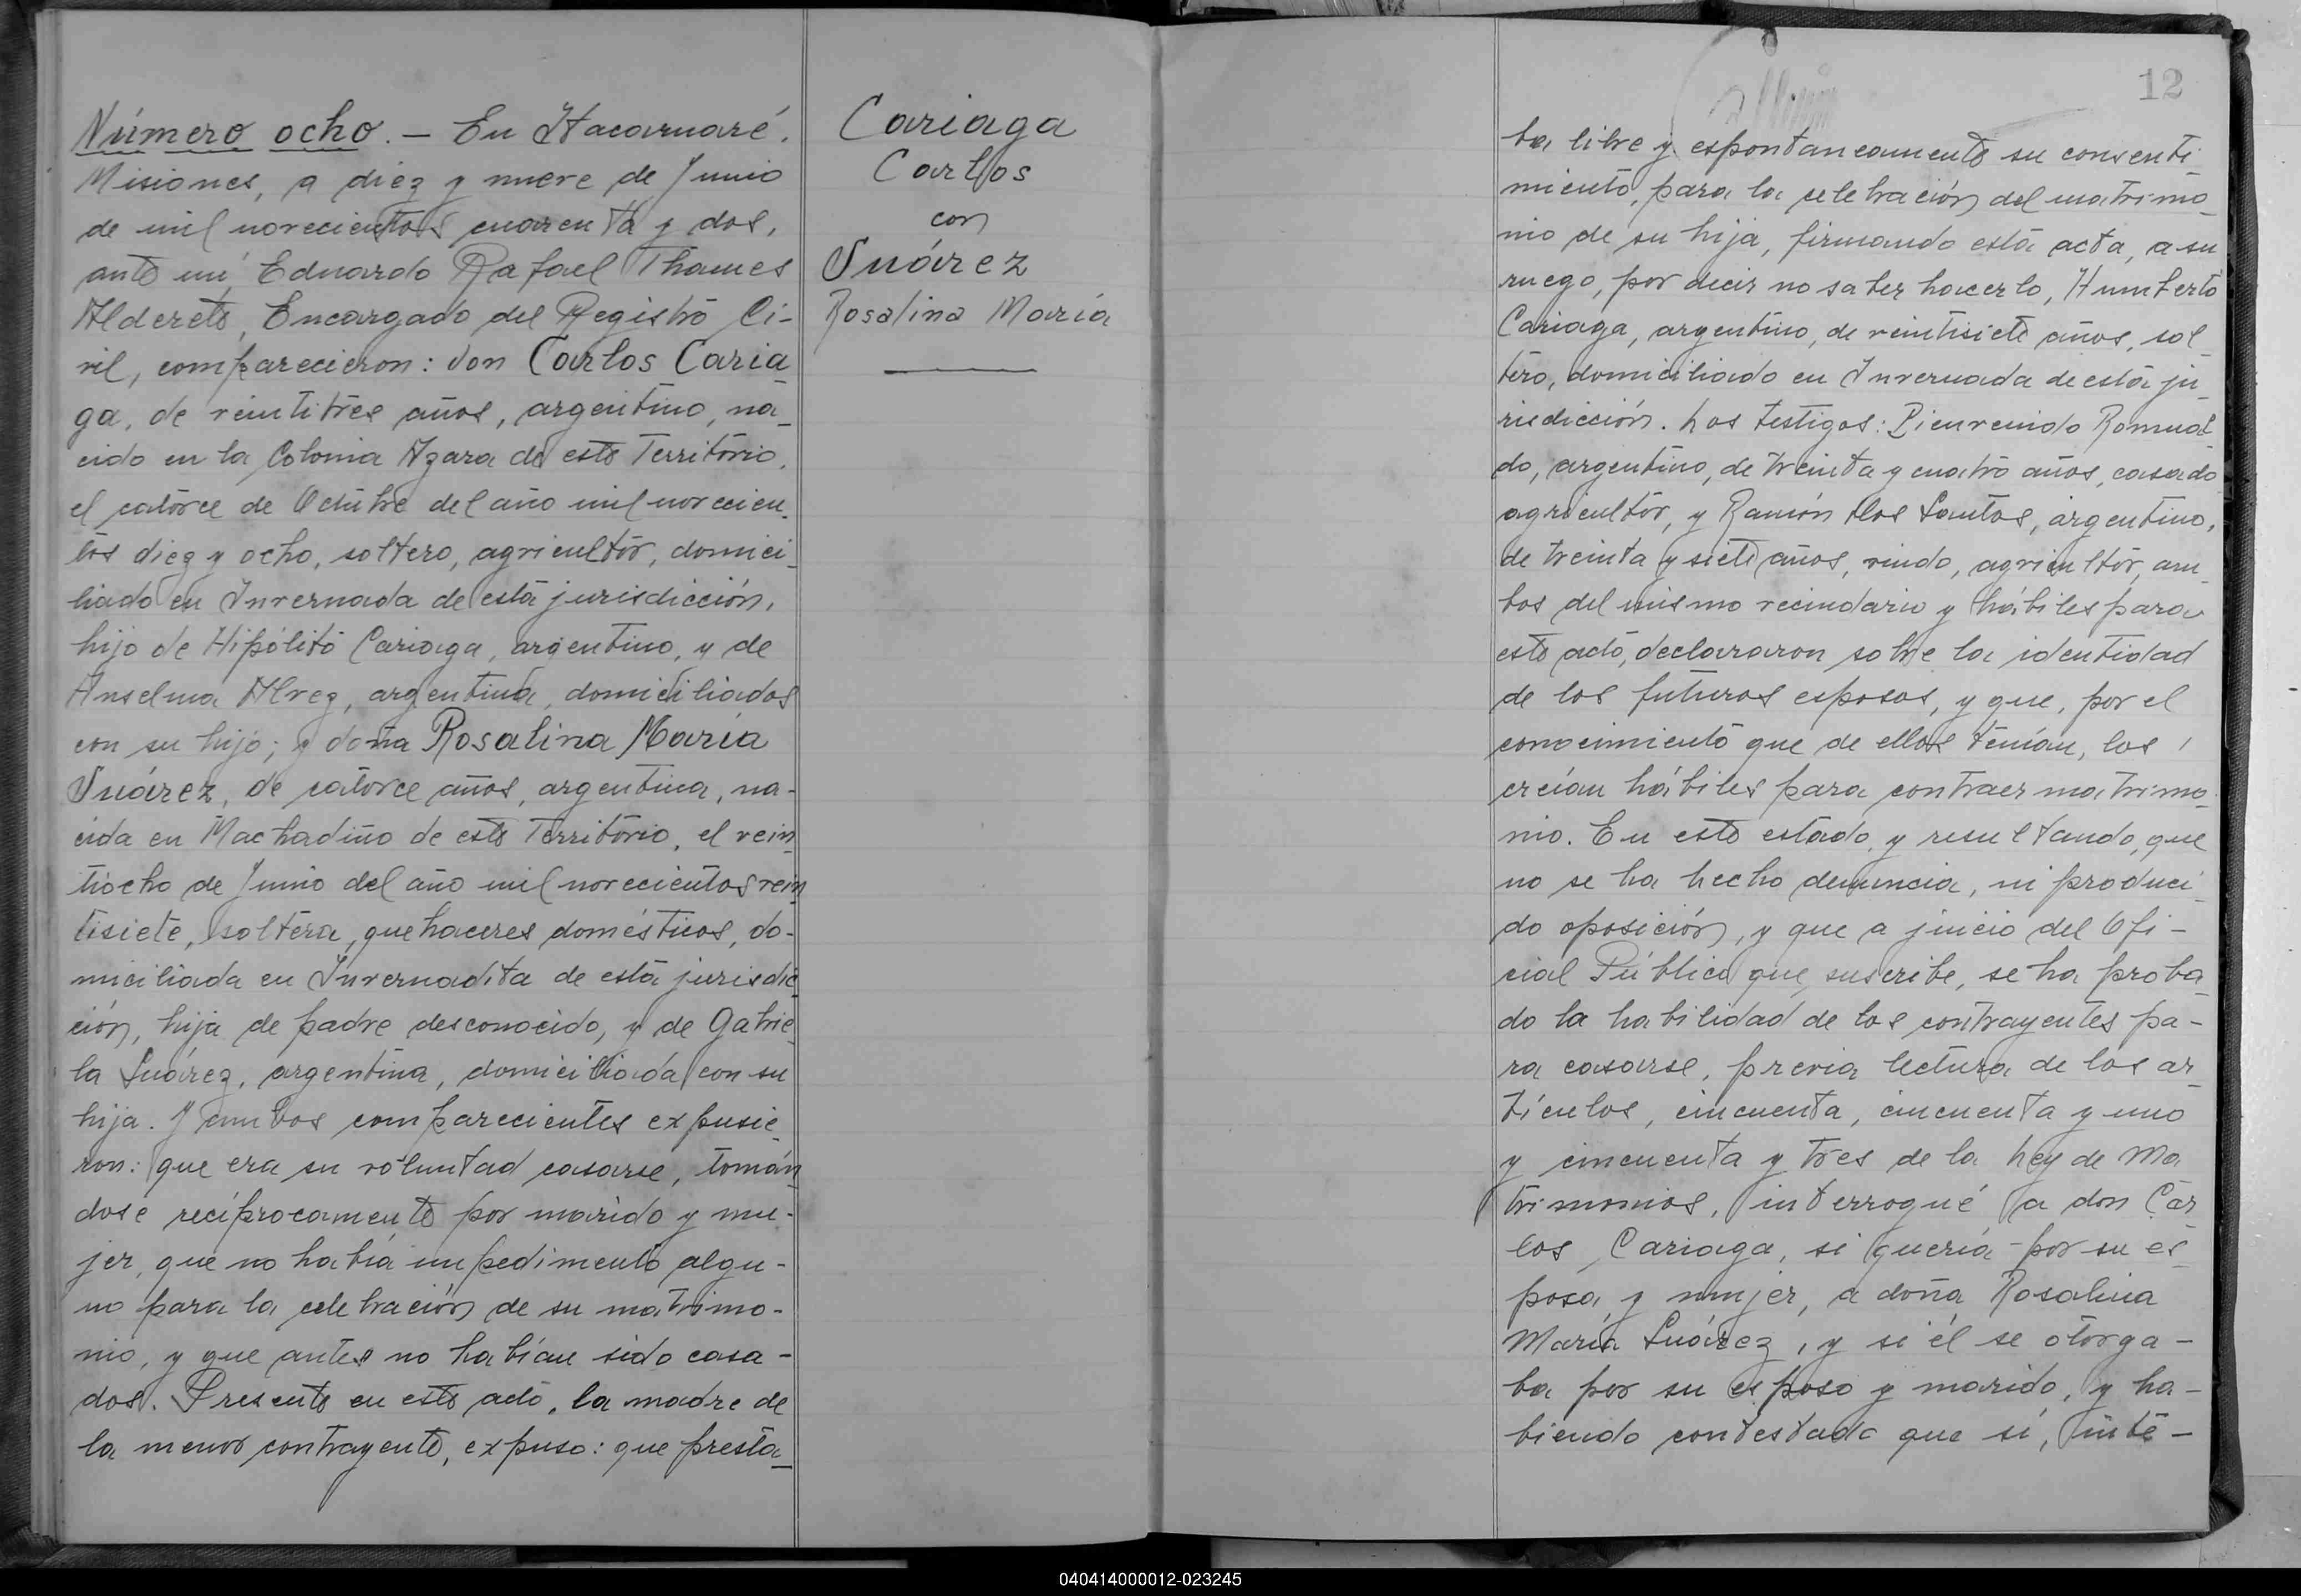 Número ocho. — En Itacaruaré,
Misiones, a diez y nueve de Junio
de mil novecientos cuarenta y dos,
ante mí, Eduardo Rafael Thames
Alderete, Encargado del Registro Ci-
vil, comparecieron: don Carlos Caria_
ga, de veintitres años, argentino, na_
cido en la Colonia Azara de este Territorio,
el catorce de Octubre del año mil novecien_
tos diez y ocho, soltero, agricultor, domici_
liado en Invernada de esta jurisdicción,
hijo de Hipólito Cariaga, argentino, y de
Anselma Alvez, argentina, domiciliados
con su hijo; y doña Rosalina María
Suárez, de catorce años, argentina, na-
cida en Machadiño de este Territorio, el vein_
tiocho de Junio del año mil novecientos vein_
tisiete, soltera, quehaceres domésticos, do-
miciliada en Invernadita de esta jurisdic_
ción, hija de padre desconocido, y de Gabrie_
la Suárez, argentina, domiciliada con su
hija. Y ambos comparecientes expusie_
ron: que era su voluntad casarse, tomán_
dose recíprocamente por marido y mu-
jer, que no había impedimento algu-
no para la celebración de su matrimo-
nio, y que antes no habían sido casa-
dos. Presente en este acto, la madre de
la menor contrayente, expuso: que presta_
Cariaga
Carlos
con
Suárez
Rosalina María
12
ba libre y espontaneamente su consenti_
miento, para la celebración del matrimo_
nio de su hija, firmando esta acta, a su
ruego, por decir no saber hacerlo, Humberto
Cariaga, argentino, de veintisiete años, sol_
tero, domiciliado en Invernada de esta ju_
risdicción. Los testigos: Bienvenido Romual_
do, argentino, de treinta y cuatro años, casado
agricultor, y Ramón dos Santos, argentino,
de treinta y siete años, viudo, agricultor, am_
bos del mismo vecindario y hábiles para
este acto, declararon sobre la identidad
de los futuros esposos, y que, por el
conocimiento que de ellos tenían, los
creían hábiles para contraer matrimo_
nio. En este estado, y resultando, que
no se ha hecho denuncia, ni produci_
do oposición, y que a juicio del Ofi-
cial Público que suscribe, se ha proba_
do la habilidad de los contrayentes pa-
ra casarse, previa lectura de los ar_
tículos, cincuenta, cincuenta y uno
y cincuenta y tres de la Ley de Ma_
trimonios, interrogué a don Car_
los Cariaga, si quería por su es_
posa y mujer, a doña Rosalina
María Suárez, y si él se otorga-
ba por su esposo y marido, y ha-
biendo contestado que sí, inte-
040414000012-023245